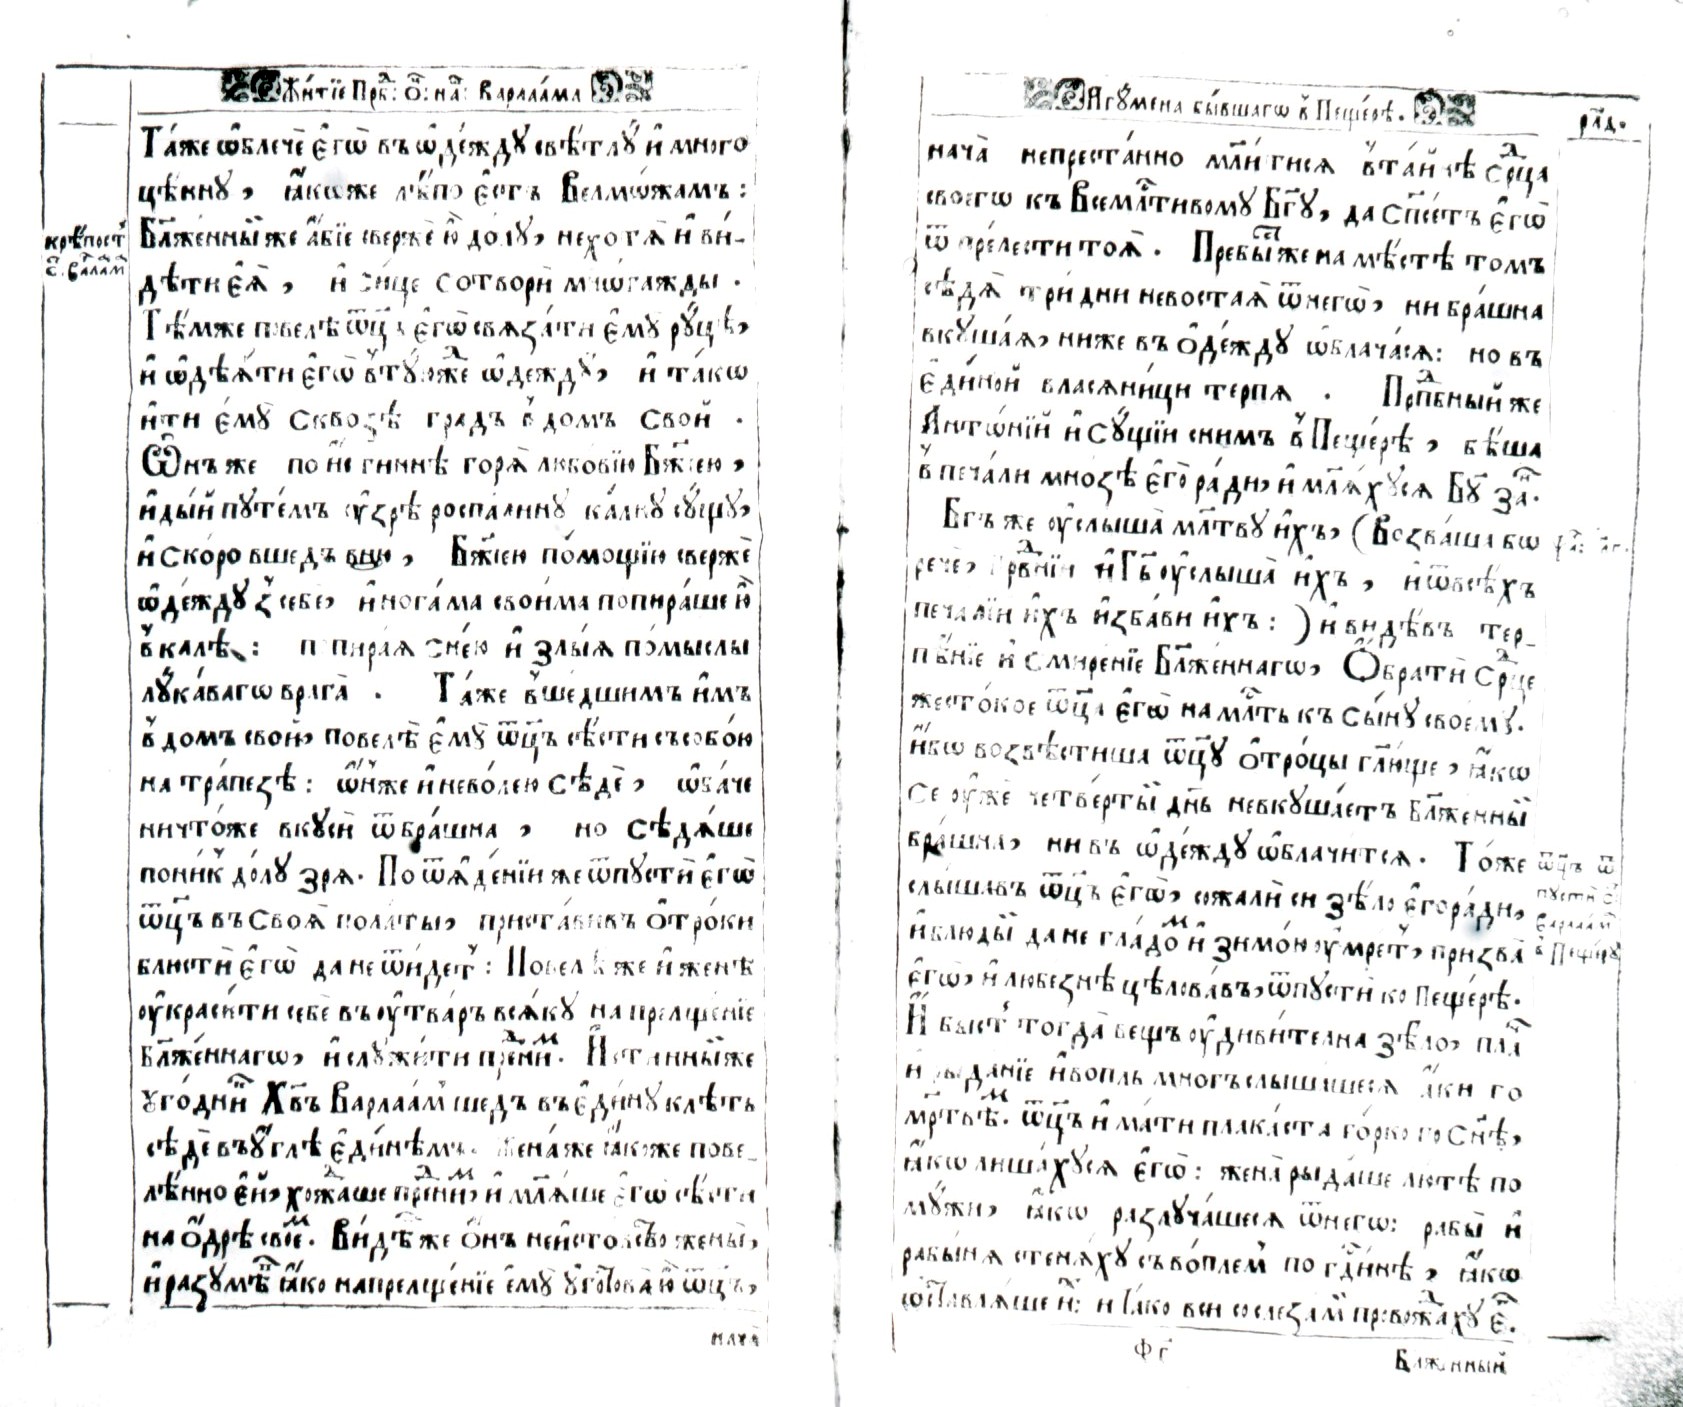 Житїе Прпⷣ: Ѻ҃: на́: Варлаа́ма
Та́же ѡ҆блечѐ є҆гѡ̀ въ ѡ҆де́ждꙋ свѣ́тлꙋ и҆ много
цѣ́ннꙋ, ꙗ҆́коже лѣ́по є҆сть Велмѡ́жамъ:
Бл҃же́нный же а҆́бїе свержѐ ю҆̀ до́лꙋ, нехотѧ̀ и҆ ви́-
дѣти є҆ѧ̀, и҆ си́це сотворѝ мно́гажды.
Тѣ́мже повелѣ̀ ѿц҃ъ є҆гѡ̀ свѧза́ти є҆мꙋ̀ рꙋ́цѣ,
и҆ ѡ҆дѣ́ѧти є҆гѡ̀ в̾тꙋ́южⷣе ѡ҆де́ждꙋ, и҆ та́кѡ
и҆тѝ є҆мꙋ̀ сквозѣ̀ градъ в̾ домъ свой.
Ѡ҆нъ же по и҆́стиннѣ горѧ̀ любо́вїю Бж҃їею,
и҆ды́й пꙋте́мъ ᲂу҆зрѣ̀ роспа́линꙋ ка́лнꙋ сꙋ́щꙋ,
и҆ ско́ро вшедъ вню̀, Бж҃їею по́мощїю свержѐ
ѡ҆де́ждꙋ з̾ себѐ, и҆ нога́ма свои́ма попира́ше ю҆̀
в̾ ка́лѣ: попира́ѧ снею и҆ злы́ѧ по́мыслы
лꙋка́вагѡ врага̀. Та́же в̾ше́дшимъ и҆̀мъ
в̾ домъ свой, повелѣ̀ є҆мꙋ̀ ѿц҃ъ сѣ́сти съсобо́ю
на тра́пезѣ: ѡ҆́нже и҆ нево́лею сѣ́де, ѡ҆ба́че
ничто́же вкꙋсѝ ѿ бра́шна, но сѣдѧ́ше
пони́к̾ до́лꙋ зрѧ. По ѿѧде́нїи же ѿпꙋстѝ є҆гѡ̀
ѿц҃ъ въ своѧ̀ пола́ты, приста́вивъ ѻ҆́троки
блюстѝ є҆гѡ̀ да не ѿи́детъ: Повелѣ̀ же и҆ женѣ̀
ᲂу҆краси́ти себѐ въ ᲂу҆́тварь всѧ́кꙋ на прелще́нїе
Бл҃же́ннагѡ, и҆ слꙋжи́ти преⷣ ниⷨ. И҆́стинный же
ꙋго́дниⷦ Хв҃ъ Варлаа́м̾ шедъ въ є҆ди́нꙋ клѣ́ть
сѣ́де въ ᲂу҆́глѣ є҆ди́нѣмъ. Жена́же ꙗ҆́коже пове-
лѣ́нно є҆́й, хожⷣаше преⷣ ниⷨ, и҆ мл҃ѧ́ше є҆гѡ̀ сѣ́сти
на ѻ҆дрѣ̀ своеⷨ. Ви́дѣв же ѻ҆́нъ неи́стовство жены̀,
и҆ разꙋмѣвъ ꙗ҆́ко на прелще́нїе є҆мꙋ̀ ꙋ҆гото́ва ю҆̀ ѿц҃ъ,
нача̀
крѣ́пост̾
с҃. Вала́м
И҆гꙋ́мена бы́вшагѡ в̾ Пеще́рѣ.
рл҃д.
нача̀ непреста́нно мл҃и́тисѧ в̾та́йнѣ срⷣца
своегѡ къ Всемлⷭ҇тивомꙋ Бг҃ꙋ, да сп҃се́тъ є҆гѡ̀
ѿ пре́лести тоѧ̀. Пребы́сть же на мѣ́стѣ томъ
сѣдѧ̀ три дни невостаѧ̀ ѿнегѡ̀, ни бра́шна
вкꙋша́ѧ, ниже въ ѻ҆де́ждꙋ ѡ҆блача́сѧ: но въ
є҆ди́ной власѧни́ци терпѧ. Прпⷣбный же
Антѡ́нїй и҆ сꙋ́щїи снимъ в̾ Пеще́рѣ, бѣ́ша
в̾ печа́ли мно́зѣ є҆го̀ ра́ди, и҆ мл҃ѧ́хꙋсѧ Бг҃ꙋ заⷩ.
Бг҃ъ же ᲂу҆слы́ша мл҃твꙋ и҆́хъ, (Возва́ша бѡ
речѐ, Прⷣвнїи и҆ Гд҃ь ᲂу҆слы́ша и҆̀хъ, и҆ ѿ всѣ́хъ
печа́лїй и҆́хъ и҆зба́ви и҆́хъ:) и҆ видѣ́въ тер-
пѣ́нїе и҆ смире́нїе Бл҃же́ннагѡ, Ѻ҆братѝ срⷣце
жесто́кое ѿц҃а є҆гѡ̀ на млⷭ҇ть къ сы́нꙋ своемꙋ̀.
И҆́бѡ возвѣсти́ша ѿц҃ꙋ ѻ҆́троцы гл҃юще, ꙗ҆́кѡ
се ᲂу҆жѐ четве́ртый дн҃ь невкꙋша́етъ Бл҃же́нный
бра́шна, ни въ ѡ҆де́ждꙋ ѡ҆блачи́тсѧ. То́же
слы́шавъ ѿц҃ъ є҆гѡ̀, сожалѝ си зѣ́ло є҆гора́ди,
и҆ блюды́й да не гла́доⷨ и҆ зимо́ю ᲂу҆́мретъ, призва̀
є҆гѡ̀, и҆ любе́знѣ цѣлова́въ, ѿпꙋстѝ ко Пеще́рѣ.
И҆ бы́ст̾ тогда̀ вещъ ᲂу҆диви́телна зѣлѡ, плаⷱ
и҆ рыда́нїе и҆ во́пль многъ слы́шашесѧ а҆́ки по
мр҃твѣⷨ. ѿц҃ъ и҆ ма́ти плака́ста го́рко по сн҃ѣ,
ꙗ҆́кѡ лиша́хꙋсѧ є҆гѡ̀: жена̀ рыда́ше лютѣ по
мꙋ́жи, ꙗ҆́кѡ разлꙋча́шесѧ ѿнегѡ: рабы̀ и҆
рабы́нѧ стенѧ́хꙋ съ во́плем̾ по гдⷭ҇и́нѣ, ꙗ҆́кѡ
ѡ҆ставлѧ́ше иⷯ: и Та́ко вси со слеза́м̾ провожⷣахꙋ єⷢ.
ѿц҃ъ ѿ
пꙋстѝ с҃
Варлаа́м
в̾ Пеще́рꙋ
Фг҃
Блаженный